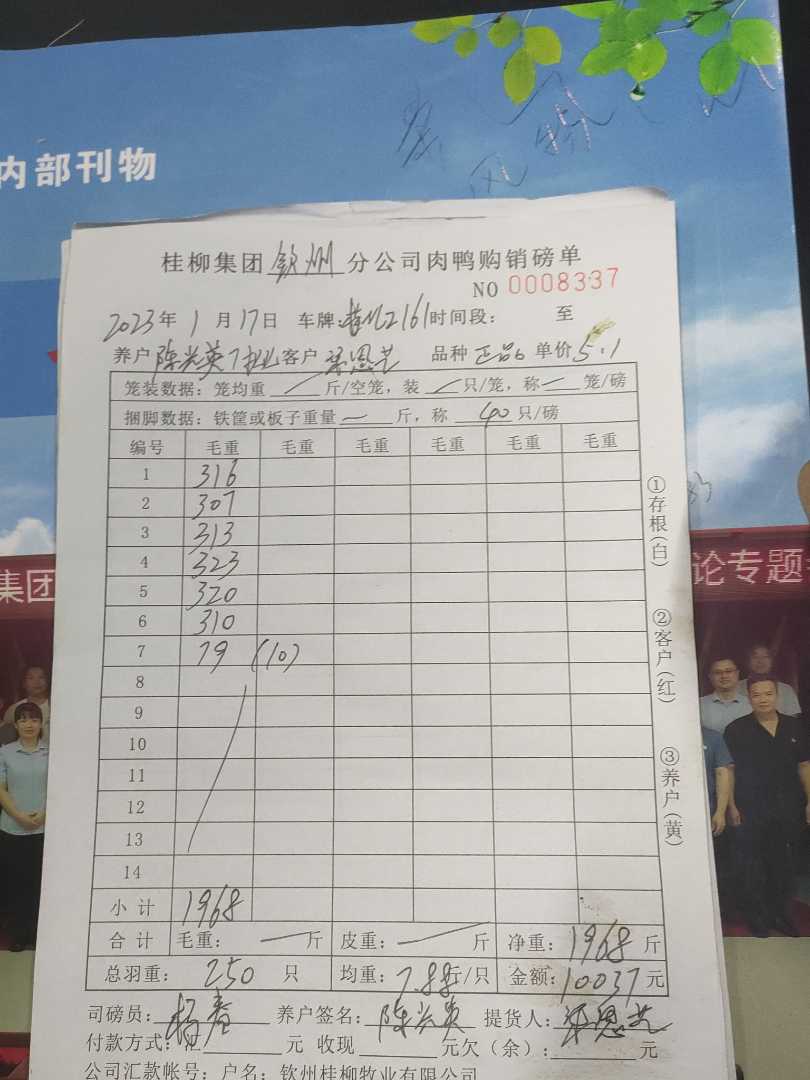 内部刊物
桂柳集团 钦州 分公司肉鸭购销磅单
NO 0008337
2023年 1 月 17日 车牌: 时间段: 至
养户 陈兴英 客户 梁恩芝 品种 正品 单价 5.1
笼装数据: 笼均重 斤/空笼, 装 只/笼, 称 笼/磅
捆脚数据: 铁筐或板子重量 斤, 称 40 只/磅
编号 毛重 毛重 毛重 毛重 毛重 毛重
1 316
2 307
3 313
4 323
5 320
6 310
7 79 (10)
8
9
10
11
12
13
14
小计 1968
合计 毛重: 斤 皮重: 斤 净重: 1968 斤
总羽重: 250 只 均重: 7.88斤/只 金额: 10037元
司磅员: 杨春 养户签名: 陈兴英 提货人: 梁恩芝
付款方式: 汇 元 收现 元欠(余): 元
公司汇款帐号: 户名: 钦州桂柳牧业有限公司
①存根(白)
②客户(红)
③养户(黄)
集团
论专题